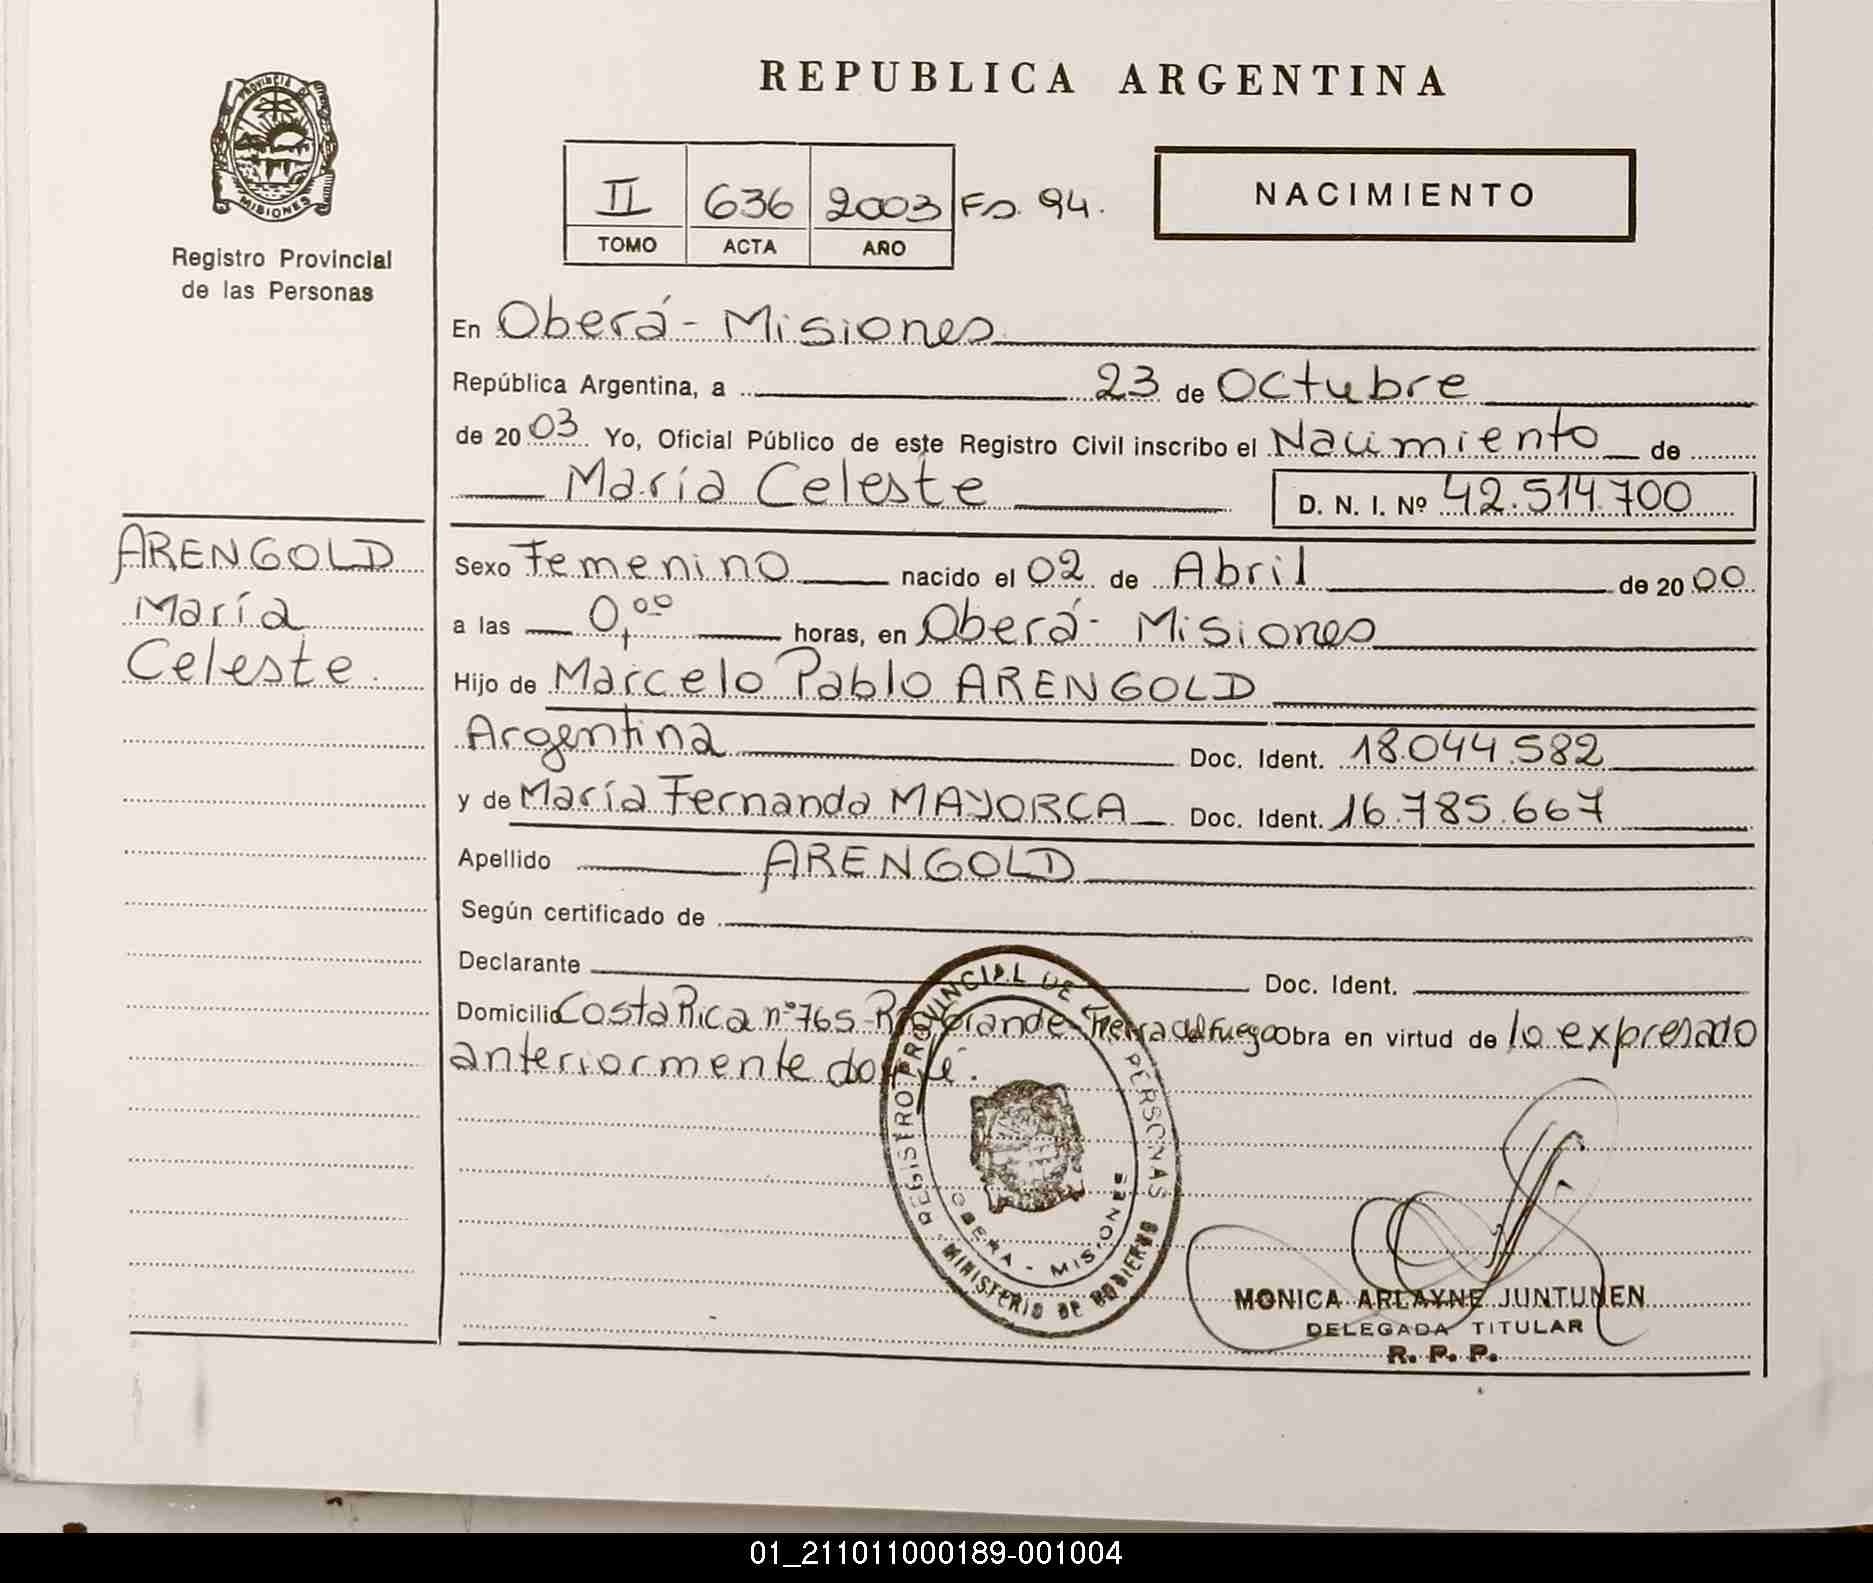 REPUBLICA ARGENTINA
PROVINCIA DE
MISIONES
Registro Provincial
de las Personas
II 636 2003 Fs. 94.
TOMO ACTA AÑO
NACIMIENTO
En Oberá - Misiones
República Argentina, a 23 de Octubre
de 2003 Yo, Oficial Público de este Registro Civil inscribo el Nacimiento de
María Celeste D. N. I. Nº 42.514.700
ARENGOLD
María
Celeste.
Sexo Femenino nacido el 02 de Abril de 2000
a las 0,00 horas, en Oberá - Misiones
Hijo de Marcelo Pablo ARENGOLD
Argentina Doc. Ident. 18.044.582
y de María Fernanda MAYORCA Doc. Ident. 16.785.667
Apellido ARENGOLD
Según certificado de
Declarante Doc. Ident.
Domicilio Costa Rica nº 765 - Río Grande - Tierra del Fuego Obra en virtud de lo expresado
anteriormente doy fé.
REGISTRO PROVINCIAL DE PERSONAS
OBERA - MISIONES
MINISTERIO DE GOBIERNO
MONICA ARLAYNE JUNTUNEN
DELEGADA TITULAR
R. P. P.
01_211011000189-001004